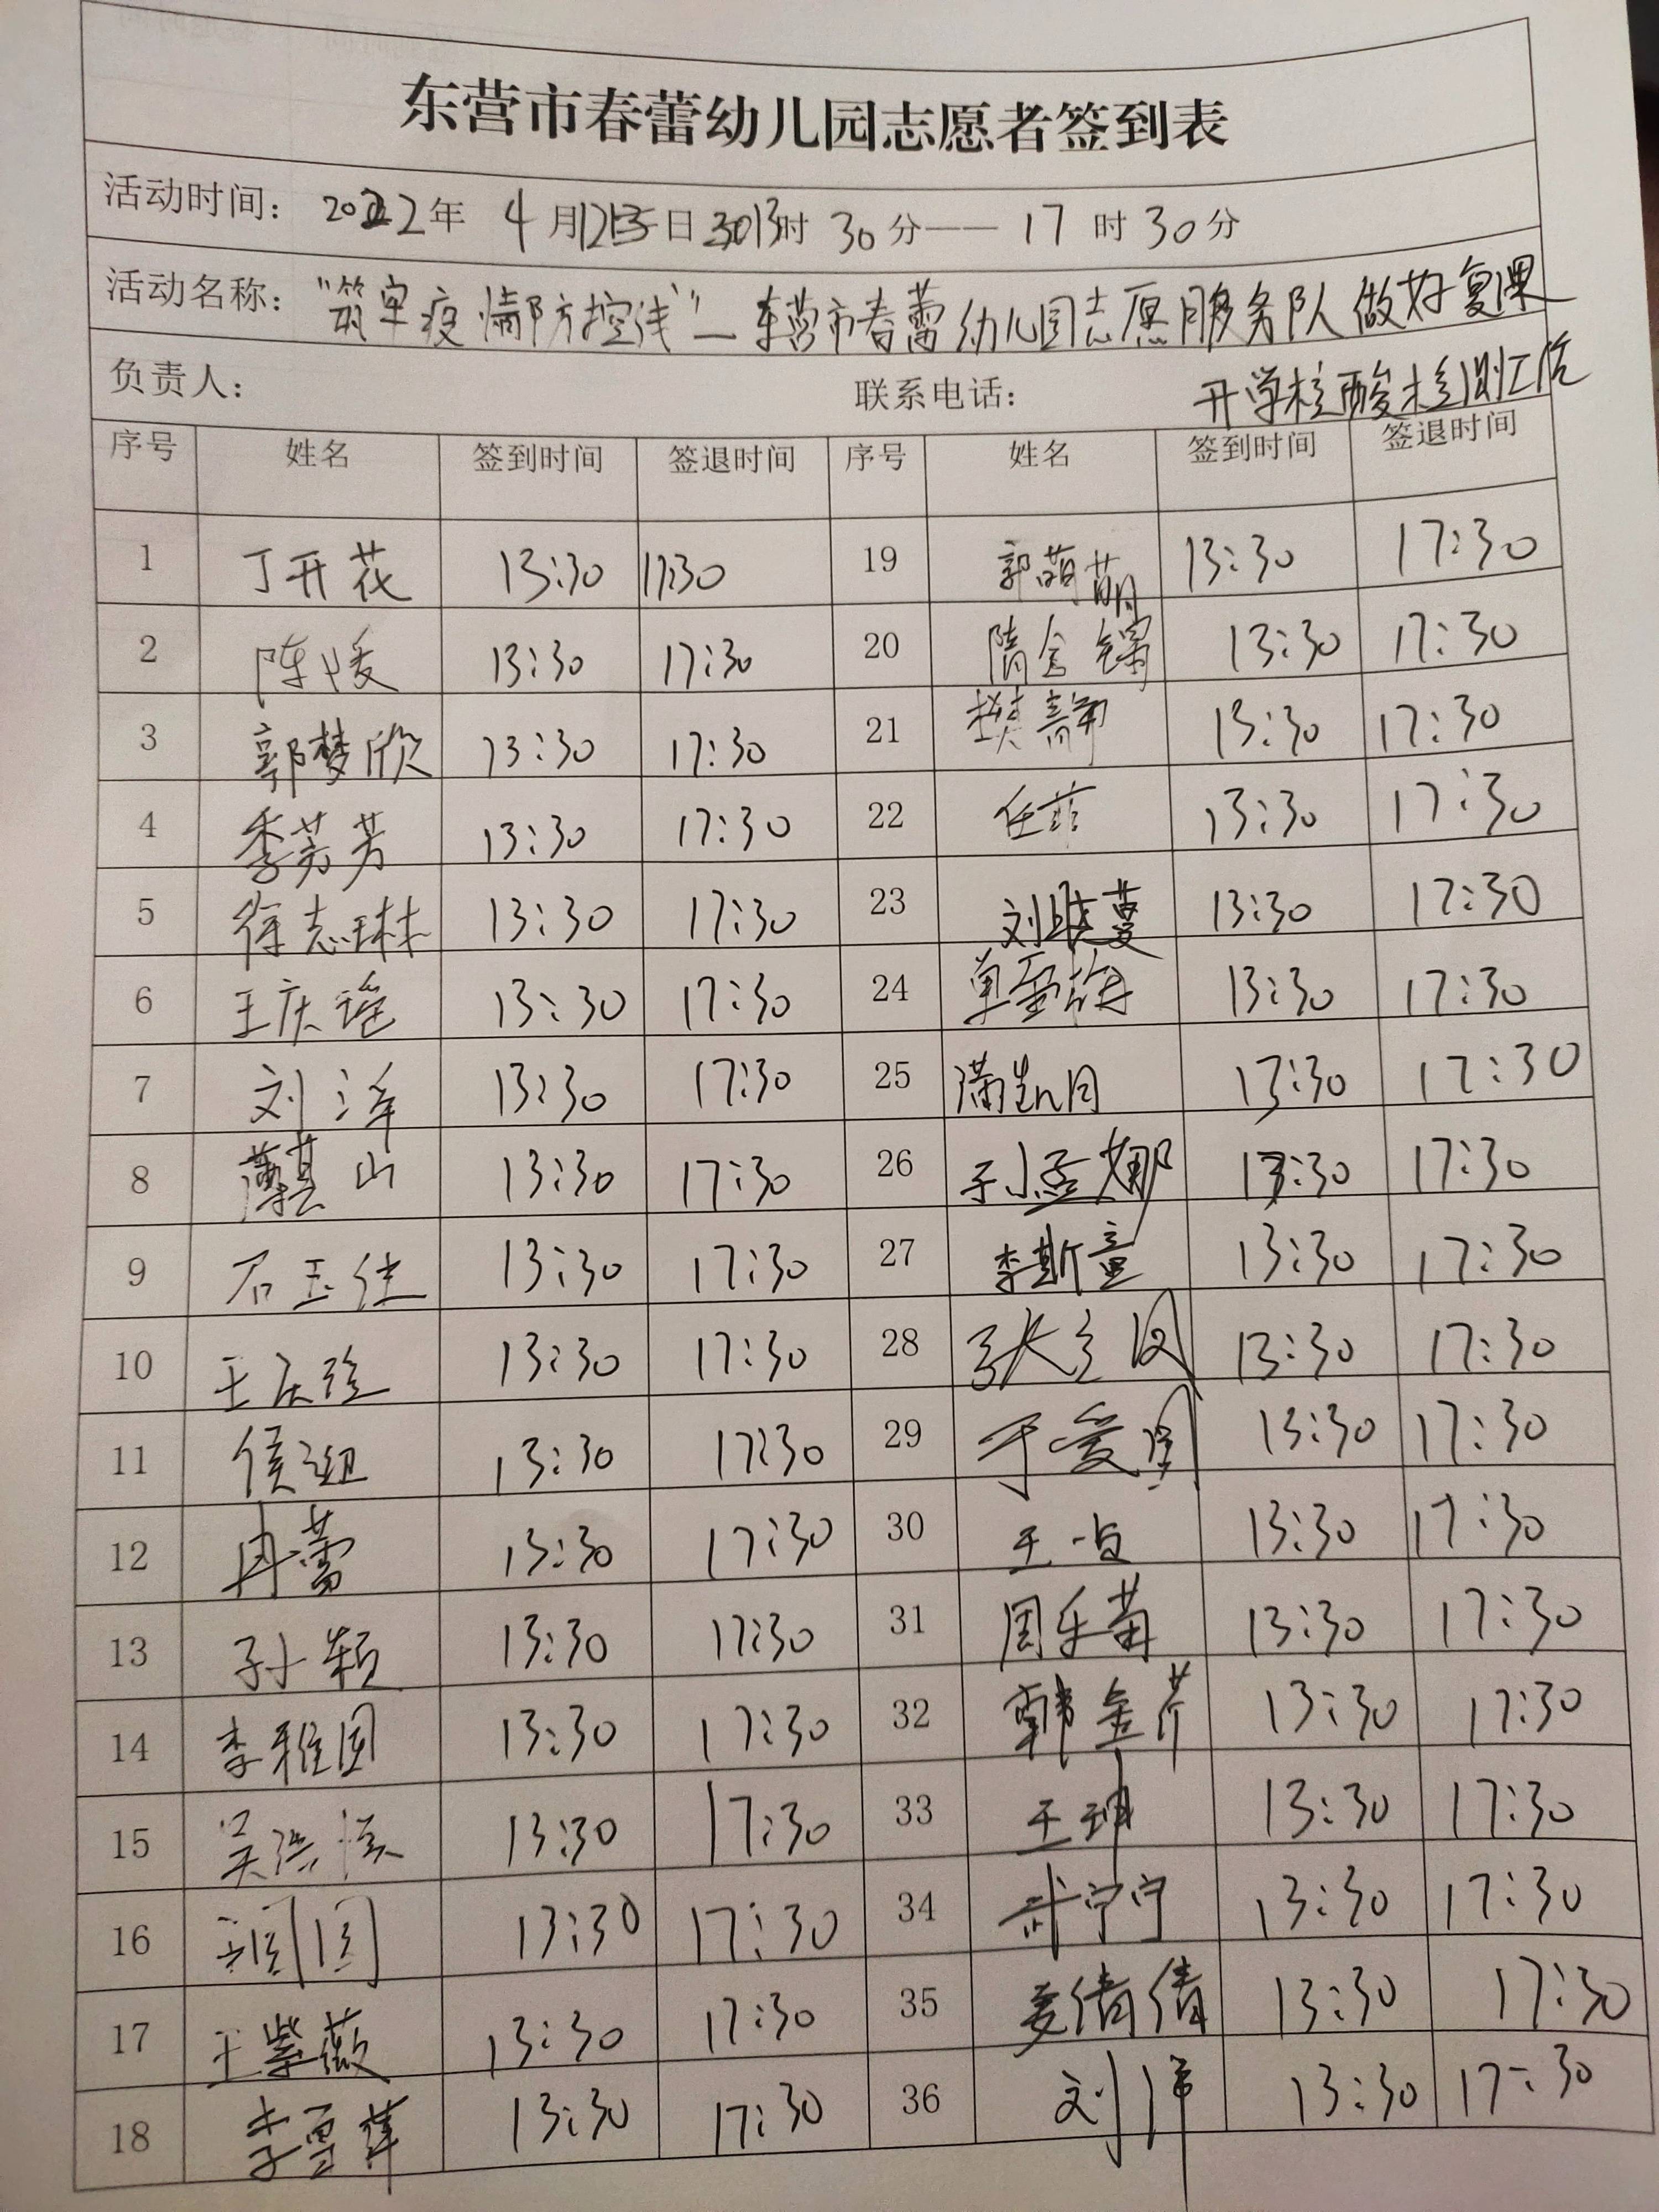 东营市春蕾幼儿园志愿者签到表
活动时间: 2022年 4月12日 13时 30分——17时30分
活动名称: "筑牢疫情防控线"—东营市春蕾幼儿园志愿服务队做好复课
开学核酸检测工作
负责人: 联系电话:
序号 姓名 签到时间 签退时间 序号 姓名 签到时间 签退时间
1 丁开花 13:30 17:30 19 郭萌萌 13:30 17:30
2 陈媛 13:30 17:30 20 隋金 13:30 17:30
3 郭梦欣 13:30 17:30 21 樊静 13:30 17:30
4 季芳芳 13:30 17:30 22 任菲 13:30 17:30
5 徐志琳 13:30 17:30 23 刘蔓 13:30 17:30
6 王庆瑶 13:30 17:30 24 单雪梅 13:30 17:30
7 刘洋 13:30 17:30 25 满凯月 13:30 17:30
8 薄其山 13:30 17:30 26 孙孟娜 13:30 17:30
9 石玉佳 13:30 17:30 27 李斯童 13:30 17:30
10 王庆 13:30 17:30 28 张 13:30 17:30
11 侯 13:30 17:30 29 于爱 13:30 17:30
12 冉蕾 13:30 17:30 30 王 13:30 17:30
13 孙颖 13:30 17:30 31 周乐菊 13:30 17:30
14 李雅国 13:30 17:30 32 韩金芹 13:30 17:30
15 吴洪 13:30 17:30 33 王珊 13:30 17:30
16 13:30 17:30 34 武宁宁 13:30 17:30
17 王紫薇 13:30 17:30 35 姜倩倩 13:30 17:30
18 李雪萍 13:30 17:30 36 刘伟 13:30 17:30